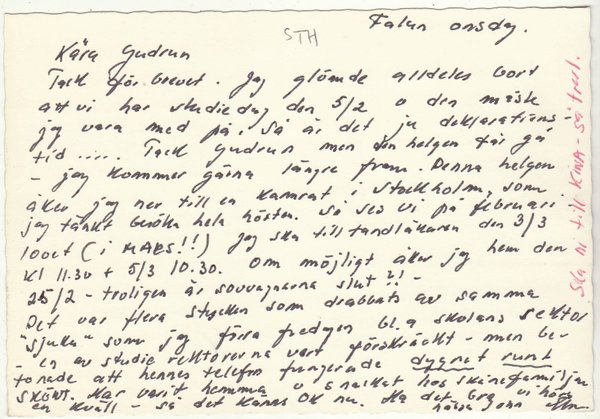 Falun onsdag.
STH
Kära Gudrun
Tack för brevet. Jag glömde alldeles bort
att vi har studiedag den 5/2 o den måste
jag vara med på. Så är det ju deklarations-
tid ..... Tack Gudrun men den helgen får gå
- jag kommer gärna längre fram. Denna helgen
åker jag ner till en kamrat i Stockholm, som
jag tänkt besöka hela hösten. Så ses vi på februari
lovet (i MARS!!) Jag ska till tandläkaren den 3/3
kl 11.30 + 5/3 10.30. Om möjligt åker jag hem den
25/2 - troligen är sovvagnarna slut?! -
Det var flera stycken som drabbats av samma
"sjuka" som jag förra fredagen bl.a skolans rektor
- en av studierektorerna vart förskräckt - men be-
tonade att hennes telefon fungerade dygnet runt
SKÖNT. Har varit hemma o snackat hos skånefamiljen
en kväll - så det känns OK nu. Ha det bra vi hörs
Ska ni till KINA - Så trist.